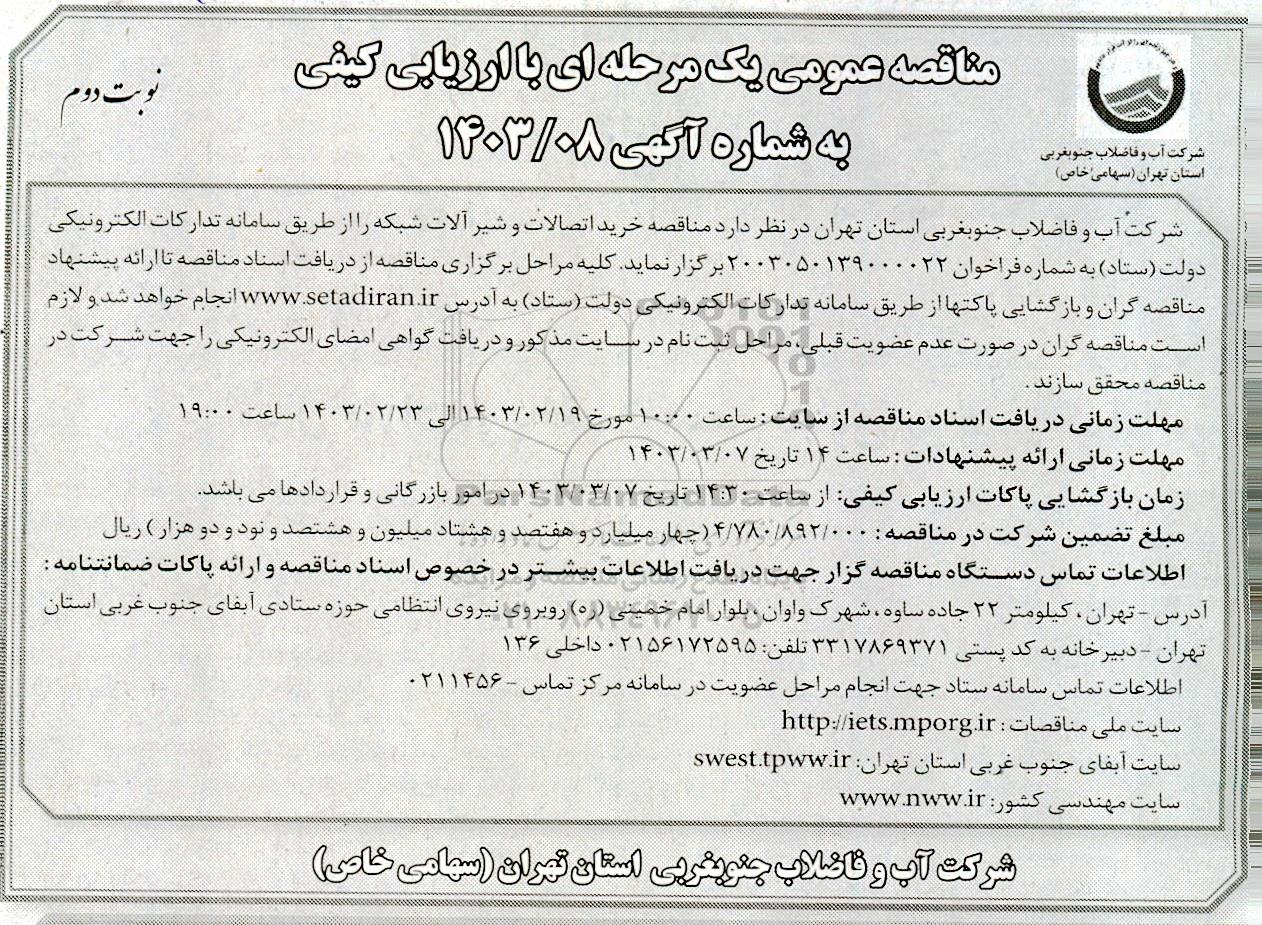 شرکت آب و فاضلاب جنوبغربی
استان تهران (سهامی خاص)
مناقصه عمومی یک مرحله ای با ارزیابی کیفی
به شماره آگهی ۱۴۰۳/۰۸
نوبت دوم
شرکت آب و فاضلاب جنوبغربی استان تهران در نظر دارد مناقصه خرید اتصالات و شیر آلات شبکه را از طریق سامانه تدارکات الکترونیکی
دولت (ستاد) به شماره فراخوان ۲۰۰۳۰۵۰۱۳۹۰۰۰۰۲۲ برگزار نماید. کلیه مراحل برگزاری مناقصه از دریافت اسناد مناقصه تا ارائه پیشنهاد
مناقصه گران و بازگشایی پاکتها از طریق سامانه تدارکات الکترونیکی دولت (ستاد) به آدرس www.setadiran.ir انجام خواهد شد و لازم
است مناقصه گران در صورت عدم عضویت قبلی، مراحل ثبت نام در سایت مذکور و دریافت گواهی امضای الکترونیکی را جهت شرکت در
مناقصه محقق سازند.
مهلت زمانی دریافت اسناد مناقصه از سایت : ساعت ۱۰:۰۰ مورخ ۱۴۰۳/۰۲/۱۹ الی ۱۴۰۳/۰۲/۲۳ ساعت ۱۹:۰۰
مهلت زمانی ارائه پیشنهادات : ساعت ۱۴ تاریخ ۱۴۰۳/۰۳/۰۷
زمان بازگشایی پاکات ارزیابی کیفی: از ساعت ۱۴:۳۰ تاریخ ۱۴۰۳/۰۳/۰۷ در امور بازرگانی و قراردادها می باشد.
مبلغ تضمین شرکت در مناقصه : ۴/۷۸۰/۸۹۲/۰۰۰ (چهار میلیارد و هفتصد و هشتاد میلیون و هشتصد و نود و دو هزار ) ریال
اطلاعات تماس دستگاه مناقصه گزار جهت دریافت اطلاعات بیشتر در خصوص اسناد مناقصه و ارائه پاکات ضمانتنامه :
آدرس - تهران ، کیلومتر ۲۲ جاده ساوه ، شهرک واوان ، بلوار امام خمینی (ره) روبروی نیروی انتظامی حوزه ستادی آبفای جنوب غربی استان
تهران - دبیرخانه به کد پستی ۳۳۱۷۸۶۹۳۷۱ تلفن: ۰۲۱۵۶۱۷۲۵۹۵ داخلی ۱۳۶
اطلاعات تماس سامانه ستاد جهت انجام مراحل عضویت در سامانه مرکز تماس - ۰۲۱۱۴۵۶
سایت ملی مناقصات : http://iets.mporg.ir
سایت آبفای جنوب غربی استان تهران: swest.tpww.ir
سایت مهندسی کشور: www.nww.ir
شرکت آب و فاضلاب جنوبغربی استان تهران (سهامی خاص)
ParsNamadData